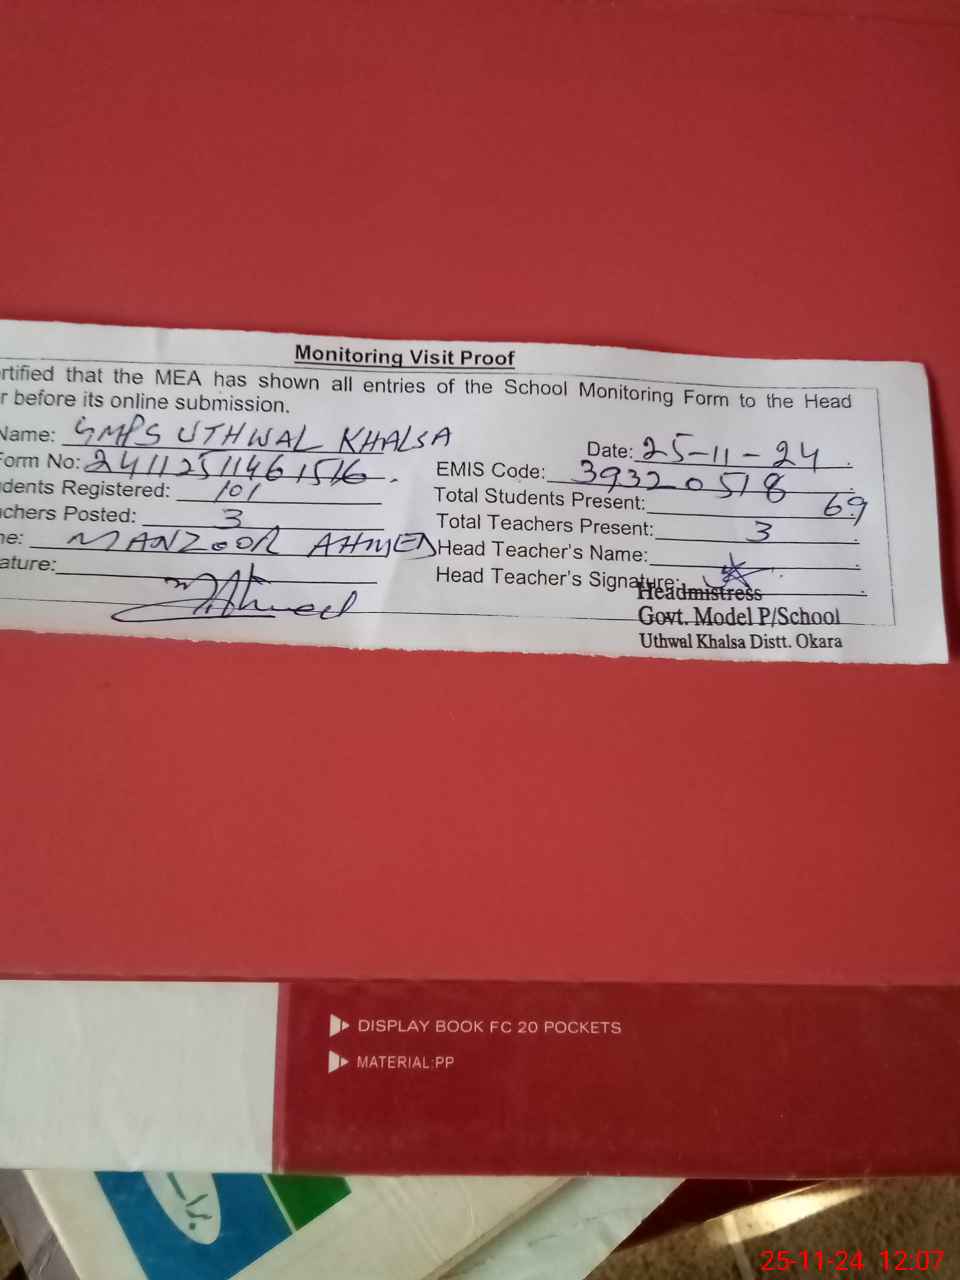 Monitoring Visit Proof
rtified that the MEA has shown all entries of the School Monitoring Form to the Head
r before its online submission.
Name: GMPS UTHWAL KHALSA Date: 25-11-24
Form No: 24112511461516. EMIS Code: 39320518
dents Registered: 101 Total Students Present: 69
chers Posted: 3 Total Teachers Present: 3
ne: MANZOOR AHMED Head Teacher's Name:
ature: M. Ahmed Head Teacher's Signature:
Headmistress
Govt. Model P/School
Uthwal Khalsa Distt. Okara
DISPLAY BOOK FC 20 POCKETS
MATERIAL:PP
25-11-24 12:07